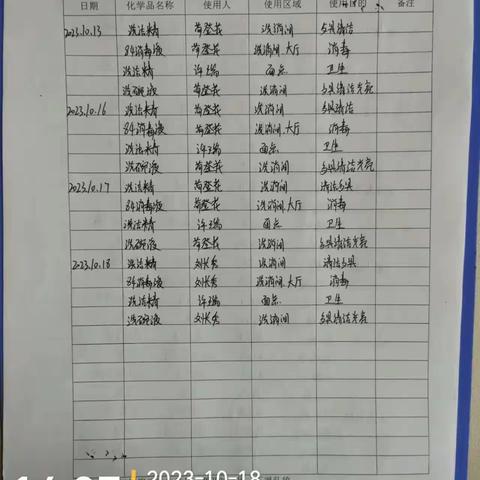 日期 化学品名称 使用人 使用区域 使用目的 备注
2023.10.13 洗洁精 苟登花 洗消间 餐具清洁
84消毒液 苟登花 洗消间.大厅 消毒
洗洁精 许瑞 面点 卫生
洗碗液 苟登花 洗消间 餐具清洁光亮
2023.10.16 洗洁精 苟登花 洗消间 餐具清洁
84消毒液 苟登花 洗消间.大厅 消毒
洗洁精 许瑞 面点 卫生
洗碗液 苟登花 洗消间 餐具清洁光亮
2023.10.17 洗洁精 苟登花 洗消间 清洁餐具
84消毒液 苟登花 洗消间大厅 消毒
洗洁精 许瑞 面点 卫生
洗碗液 苟登花 洗消间 餐具清洁光亮
2023.10.18 洗洁精 刘长秀 洗消间 清洁餐具
84消毒液 刘长秀 洗消间.大厅 消毒
洗洁精 许瑞 面点 卫生
洗碗液 刘长秀 洗消间 餐具清洁光亮
2023-10-18